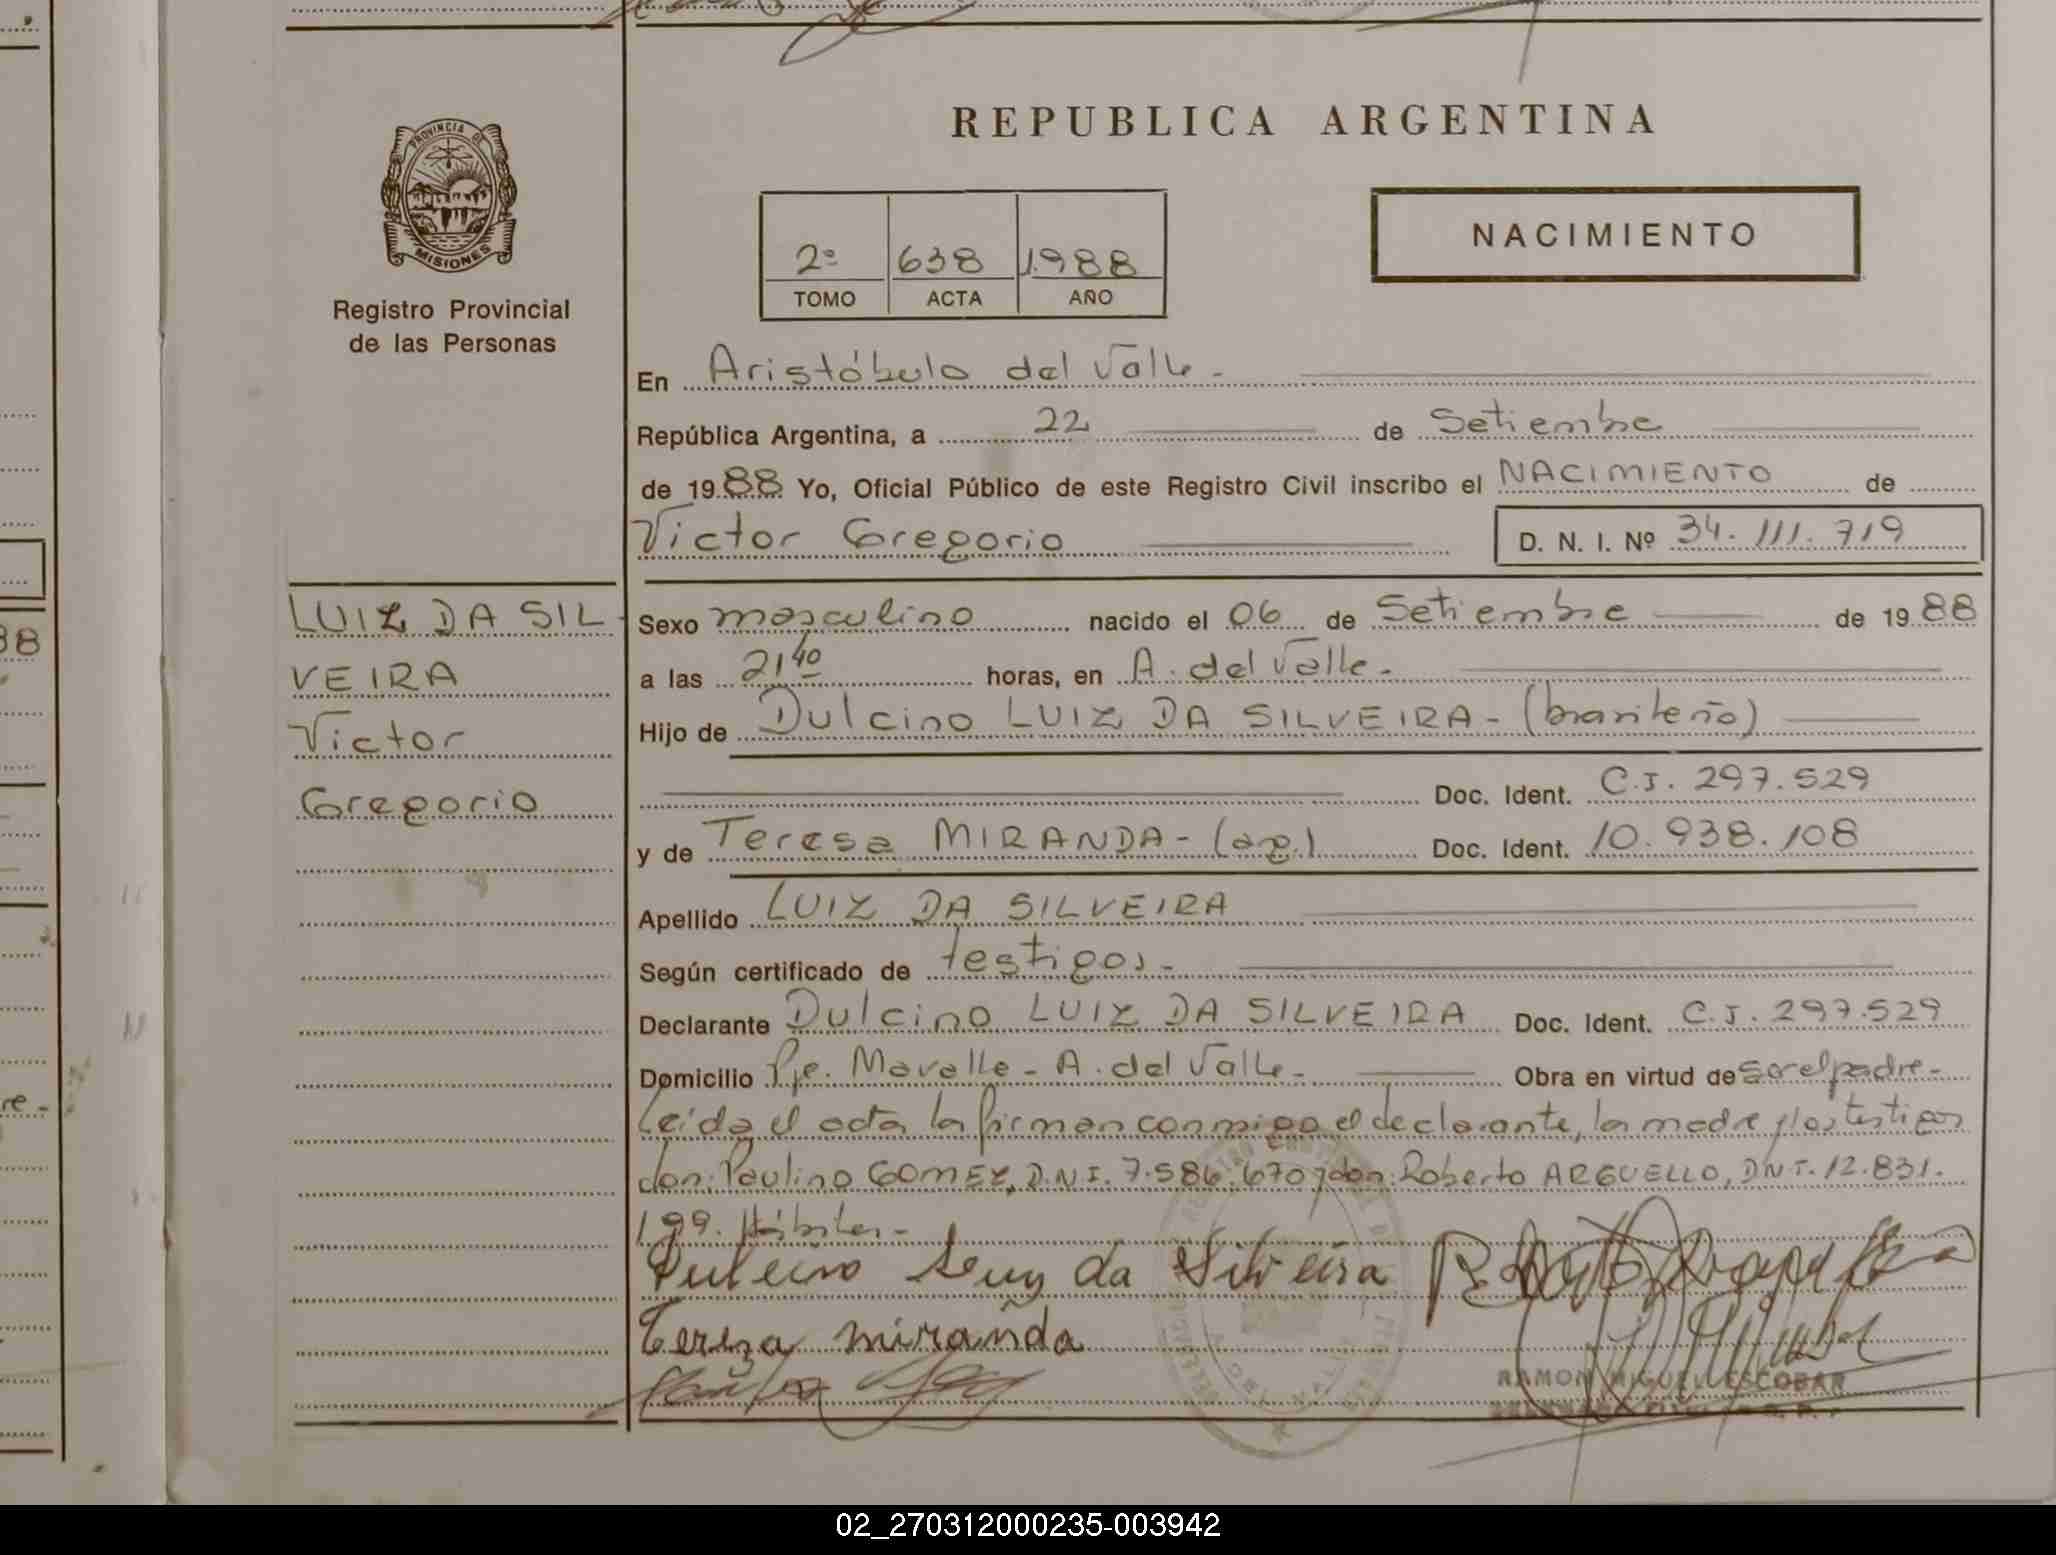 REPUBLICA ARGENTINA
PROVINCIA DE
MISIONES
Registro Provincial
de las Personas
2º 638 1.988
TOMO ACTA AÑO
NACIMIENTO
En Aristóbulo del Valle.-
República Argentina, a 22 de Setiembre
de 1988 Yo, Oficial Público de este Registro Civil inscribo el NACIMIENTO de
Victor Gregorio D. N. I. Nº 34.111.719
LUIZ DA SIL-
VEIRA
Victor
Gregorio
Sexo masculino nacido el 06 de Setiembre de 1988
a las 21⁴⁰ horas, en A. del Valle.-
Hijo de Dulcino LUIZ DA SILVEIRA-(brasileño)
Doc. Ident. C.I. 297.529
y de Teresa MIRANDA-(arg.) Doc. Ident. 10.938.108
Apellido LUIZ DA SILVEIRA
Según certificado de testigos.-
Declarante Dulcino LUIZ DA SILVEIRA Doc. Ident. C.I. 297.529
Domicilio Pje. Mavalle - A. del Valle.- Obra en virtud de ser el padre.-
Leída el acta la firman conmigo el declarante, la madre y los testigos
don: Paulino GOMEZ, D.N.I. 7.586.670 y don: Roberto ARGUELLO, D.N.I. 12.831.
199. Hábiles.-
Dulcino Luiz da Silveira
Tereza miranda
RAMON MIGUEL ESCOBAR
02_270312000235-003942